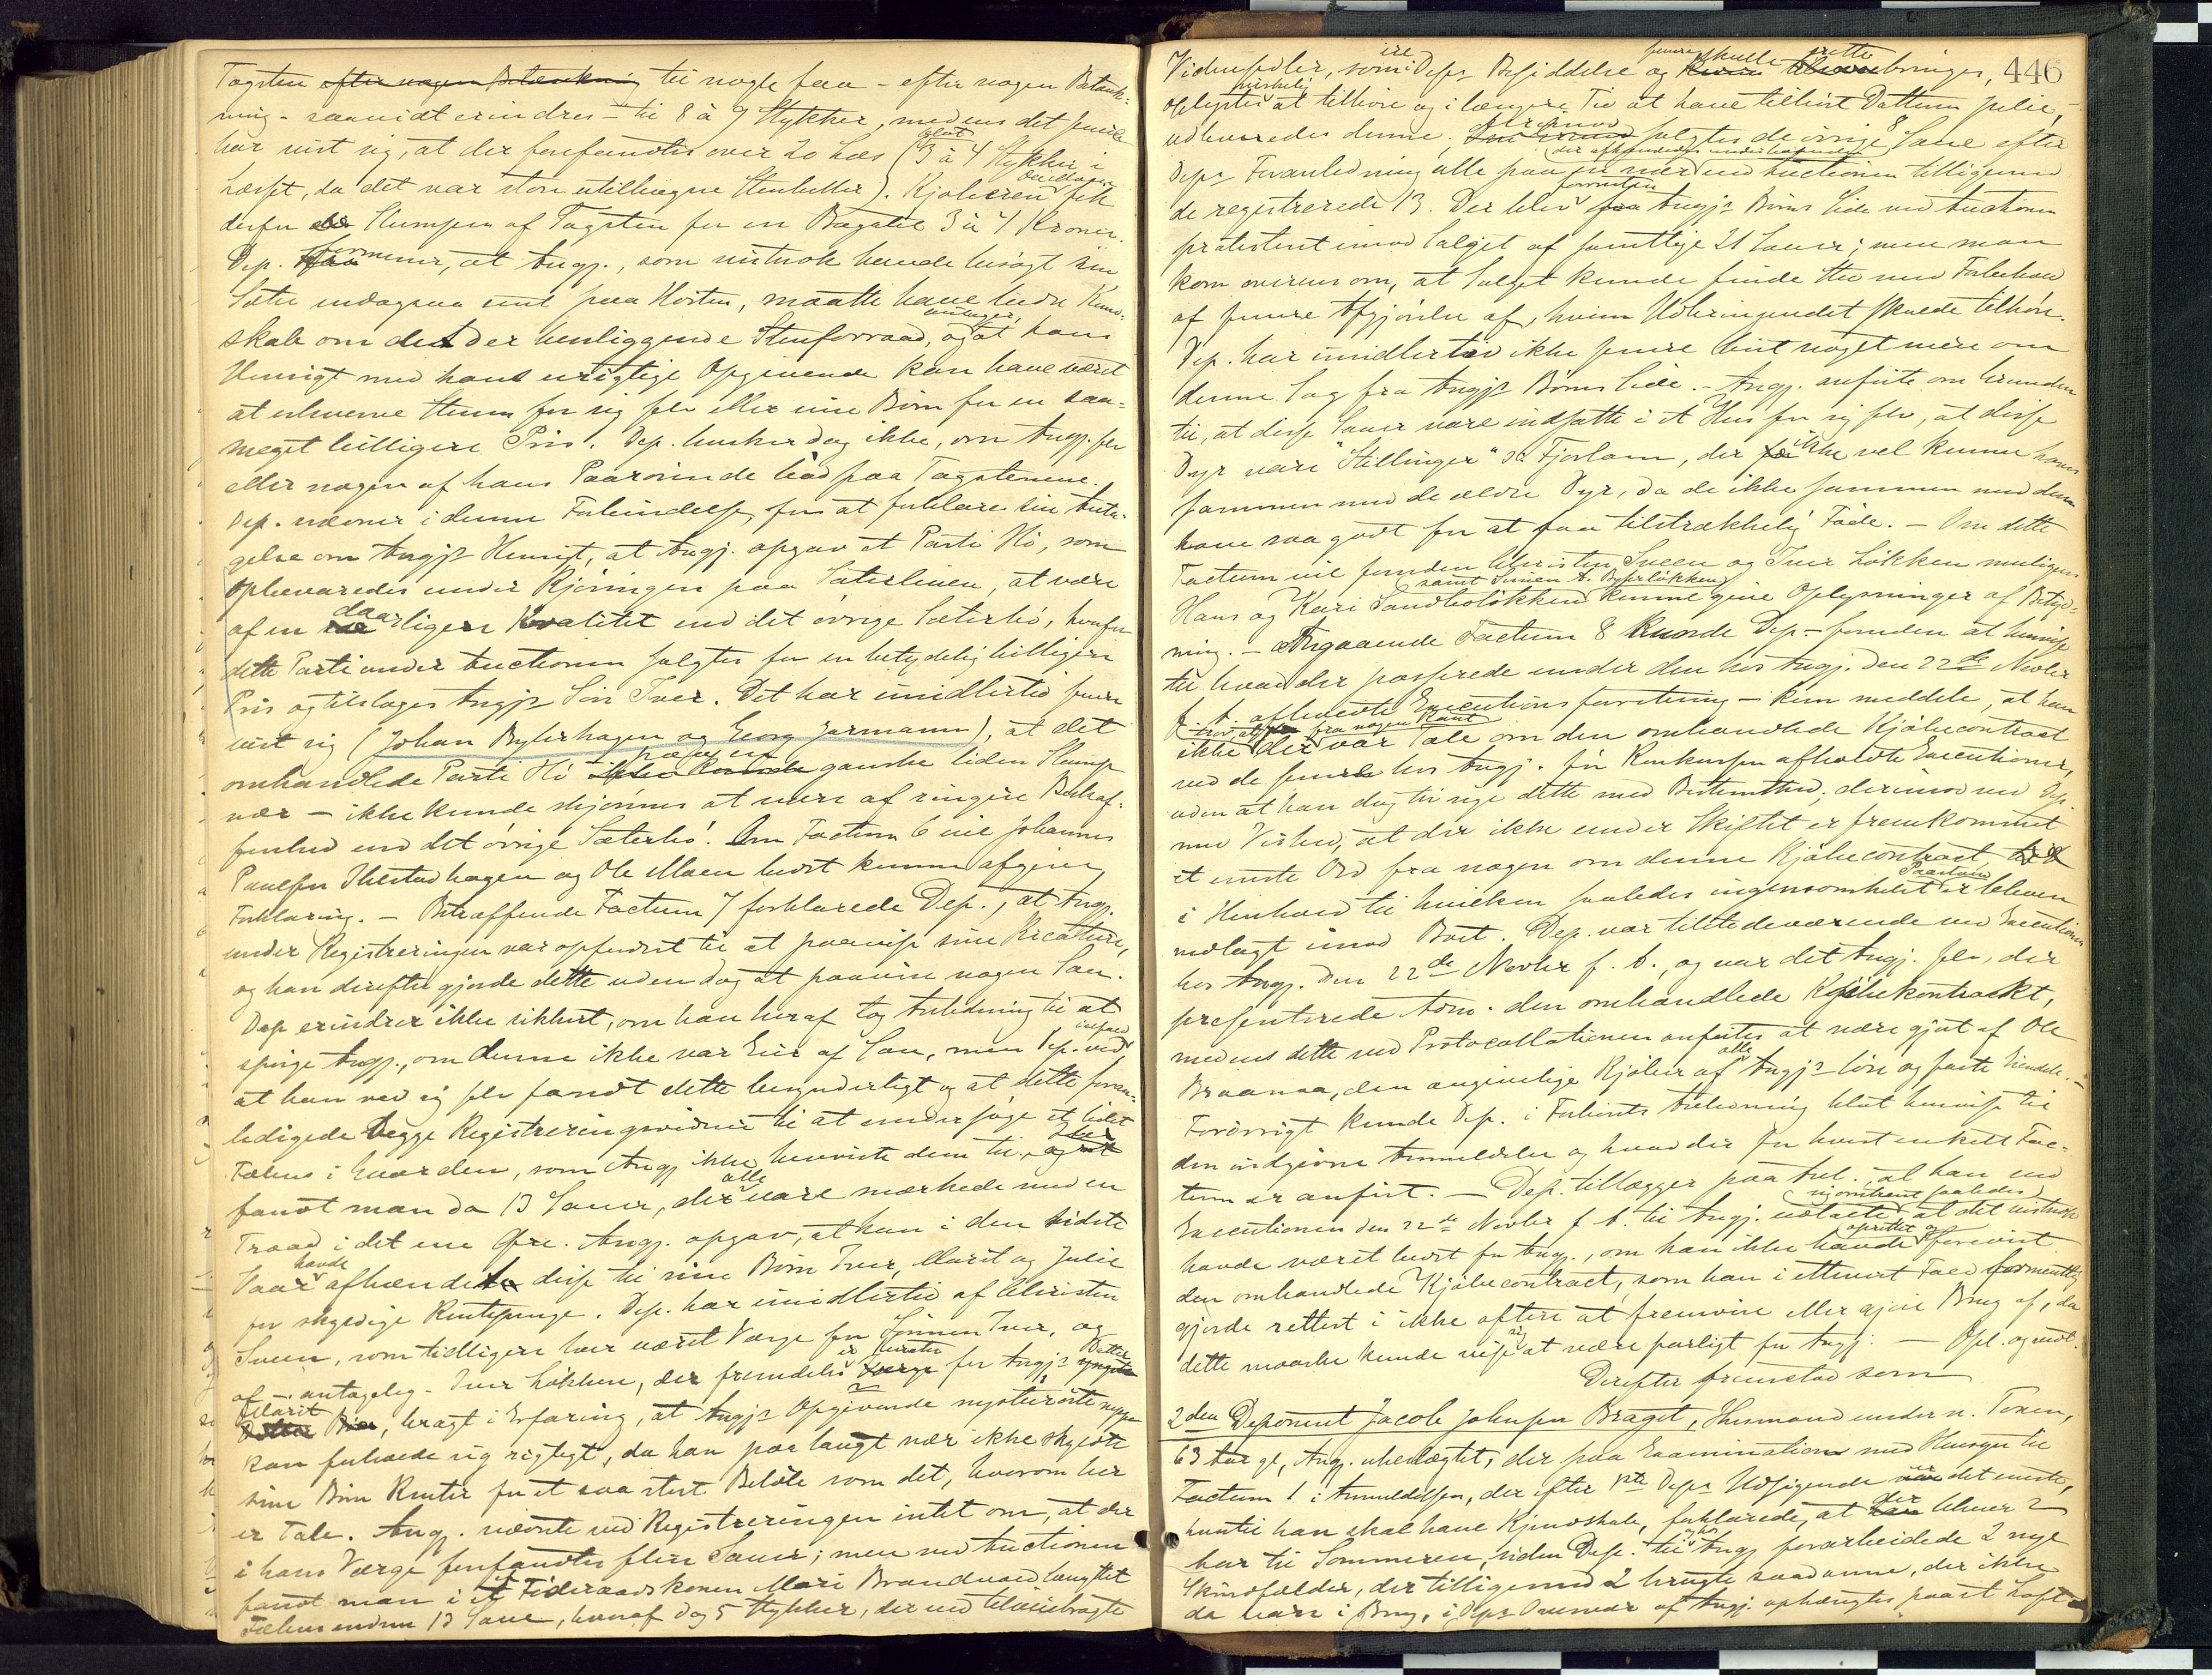 Tagsten efter nogen Betænkning til nogle faa - efter nogen Betænk-
ning - saavidt erindres - til 8 à 9 Stykker, medens det senere
har vist sig, at der forefandtes over 20 Læs (3 à 4 Stykker i
Læsset, da det var store utilhugne Stenheller). Kjøberen fik
derfor Slumpen af Tagsten for en Bagatel 3 à 4 Kroner.
Dep. formener, at Angj., som vistnok havde besøgt sin
Sæter endogsaa sent paa Høsten, maatte have bedre Kund-
skab om det der henliggende Stenforraad, og antager, at hans
Hensigt med hans urigtige Opgivende kan have været
at erhverve Stenen for sig selv eller sine Børn for en saa-
meget billigere Pris. Dep. husker dog ikke, om Angj. selv
eller nogen af hans Paarørende bød paa Tagstenene.
Dep. nævner i denne Forbindelse, for at forklare sin Anta-
gelse om Angj's Hensigt, at Angj. opgav et Parti Hø, som
opbevaredes under Kjøringen paa Sæterløen, at være
af en daarligere Kvalitet end det øvrige Sæterhø, hvorfor
dette Parti under Auctionen solgtes for en betydelig billigere
Pris og tilsloges Angj's Søn Iver. Det har imidlertid senere
vist sig (Johan Bylerhagen og Georg Jarmann), at det
omhandlede Parti Hø ganske liden Slump
nær - ikke kunde skjønnes at være af ringere Beskaf-
fenhed end det øvrige Sæterhø. Om Factum 6 vil Johannes
Paulsen Ihlestadhagen og Ole Moen bedst kunne afgive
Forklaring. - Betræffende Factum 7 forklarede Dep., at Angj.
under Registreringen var opfordret til at paavise sine Kreaturer,
og han derefter gjorde dette uden dog at paavise nogen Sau.
Dep erindrer ikke sikkert, om han heraf tog Anledning til at
spørge Angj., om denne ikke var Eier af Sau, men Dep. ved ialfald
at han ved sig selv fandt dette besynderligt og at dette foran-
ledigede begge Registreringsvidner til at undersøge et lidet
Fæhus i Gaarden, som Angj ikke henviste dem til, og her
fandt man da 13 Sauer, der alle vare mærkede med en
Traad i det ene Øre. Angj. opgav, at han i den sidste
Vaar havde afhændet disse til sine Børn Iver, Marit og Julie
for skyldige Rentepenge. Dep. har imidlertid af Christen
Sveen, som tidligere har været Værge for Sønnen Iver, og
af - antagelig - Iver Løkken, der fremdeles er Værge for Angj's Datter
Marit, bragt i Erfaring, at Angj's Opgivende nysnævnte neppe
kan forholde sig rigtigt, da han paa langt nær ikke skyldte
sine Børn Renter for et saa stort Beløb som det, hvorom her
er Tale. Angj. nævnte ved Registreringen intet om, at der
i hans Værge forefandtes flere Sauer; men ved Auctionen
fandt man i et Føderaadskonen Mari Brandvold tilhørende
Fæhus endnu 13 Saue, hvoraf dog 5 Stykker, der ved tilveiebragte
446
Vidnesedler, som i Deps Besiddelse og senere skulle tilveiebringes,
oplystes at tilhøre og i længere Tid at have tilhørt Datteren Julie,
udleveredes denne. Derimod solgtes de øvrige 8 Saue efter
Deps Foranledning alle paa Auctionen tilligemed
de registrerede 13. Der blev forresten fra Angj's Børns Side ved Auctionen
protesteret imod Salget af samtlige 21 Sauer; men man
kom overens om, at Salget kunde finde Sted med Forbehold
af senere Afgjørelse af, hvem Udbringendet skulde tilhøre.
Dep. har imidlertid ikke senere hørt noget mere om
denne Sag fra Angj's Børns Side. - Angj. anførte om Grunden
til, at disse Sauer vare indsatte i et Hus for sig selv, at disse
Dyr vare "Stillinger" o: Fjorlam, der ikke vel kunne haves
sammen med de ældre Dyr, da de ikke sammen med dem
have saa godt for at faa tilstrækkelig Føde. - Om dette
Factum vil foruden Christen Sveen og Iver Løkken muligens
Hans og Kari Sandboløkken samt Simen A. Byerløkken kunne give Oplysninger af Betyd-
ning. - Angaaende Factum 8 kunde Dep - foruden at henvise
til hvad der passerede under den hos Angj. den 22de Novbr
f. A. afholdte Executionsforretning - kun meddele, at han
ikke tror, at der fra nogen Kant var Tale om den omhandlede Kjøbecontract
ved de senere hos Angj. før Konkursen afholdte Executioner,
uden at han dog tør sige dette med Bestemthed; derimod ved Dep.
med Vished, at der ikke under Skiftet er fremkommet
et eneste Ord fra nogen om denne Kjøbecontract,
i Henhold til hvilken saaledes ingensomhelst Paastand er bleven
nedlagt imod Boet. Dep. var tilstedeværende ved Executionen
hos Angj. den 22de Novbr f. A., og var det Angj. selv, der
presenterede Adm. den omhandlede Kjøbekontrackt,
medens dette ved Protocollationen anførtes at være gjort af Ole
Braanaa, den angivelige Kjøber af alle Angj's løse og faste Eiendele. -
Forøvrigt kunde Dep. i Forhørets Anledning blot henvise til
den indgivne Anmeldelse og hvad der for hvert enkelt Fac-
tum er anført. - Dep. tillægger paa Anl., at han ved
Executionen den 22de Novbr f. A. til Angj. udtalte nogenlunde saaledes, at det vistnok
havde været bedst for Angj., om han ikke havde oprettet og forevist
den omhandlede Kjøbecontract, som han i ethvert Fald formentlig
gjorde rettest i ikke oftere at fremvise eller gjøre Brug af, da
dette maaske kunde vise sig at være farligt for Angj. - Opl. og vedt.
Derefter fremstod som
2den Deponent Jacob Johnsen Braget, Husmand under n. Tonen,
63 Aar gl., Angj. ubeslægtet, der paa Examination med Hensyn til
Factum 1 i Anmeldelsen, der efter 1ste Deps Udsigende er det eneste,
hvortil han skal have Kjendskab, forklarede, at der bliver 2
Aar til Sommeren, siden Dep. til og hos Angj forarbeidede 2 nye
Skindfælder, der tilligemed 2 brugte saadanne, der ikke
da vare i Brug, i Deps Nærvær af Angj. ophængtes paa et Loft